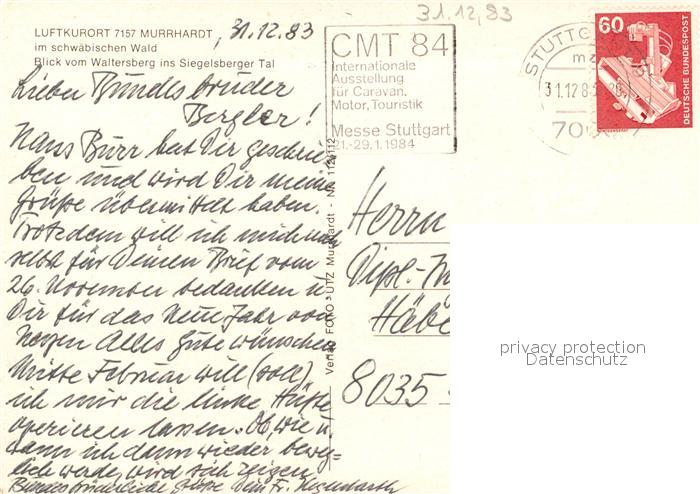 31.12.83
LUFTKURORT 7157 MURRHARDT
im schwäbischen Wald
Blick vom Waltersberg ins Siegelsberger Tal
, 31.12.83
Lieber Bundesbruder
Bergler!
Hans Burr hat Dir geschrie-
ben und wird Dir meine
Grüße übermittelt haben.
Trotzdem will ich mich
selbst für Deinen Brief vom
26. November bedanken u.
Dir für das Neue Jahr von
Herzen Alles Gute wünschen
Mitte Februar will (soll)
ich mir die linke Hüfte
operieren lassen. Ob, wie u.
wann ich dann wieder beweg=
lich werde, wird sich zeigen
Bundesbrüderliche Grüße Dein Fr.
CMT 84
Internationale
Ausstellung
für Caravan,
Motor, Touristik
Messe Stuttgart
21.-29.1.1984
STUTTG
31.12.8
60
DEUTSCHE BUNDESPOST
Verlag FOTO UTZ Murrhardt - Nr. 112
Herrn
Dipl.-
Häbe
8035
privacy protection
Datenschutz